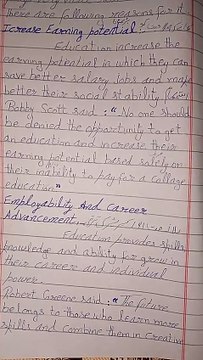 There are following reasons for it
Icrease Earning potential:-
Education increase the
earning potential in which they can
save better salary jobs and make
better their social stability
Bobby Scott said: "No one should
be denied the opportunity to get
an education and increase their
earning potential based solely on
their inability to pay for a collage
education"
Employability And Career
Advancement
Education provides skills
knowledge and ability for grow in
their career and individual
power.
Robert Greene said: "The future
belongs to those who learn more
skills and combine them in creative